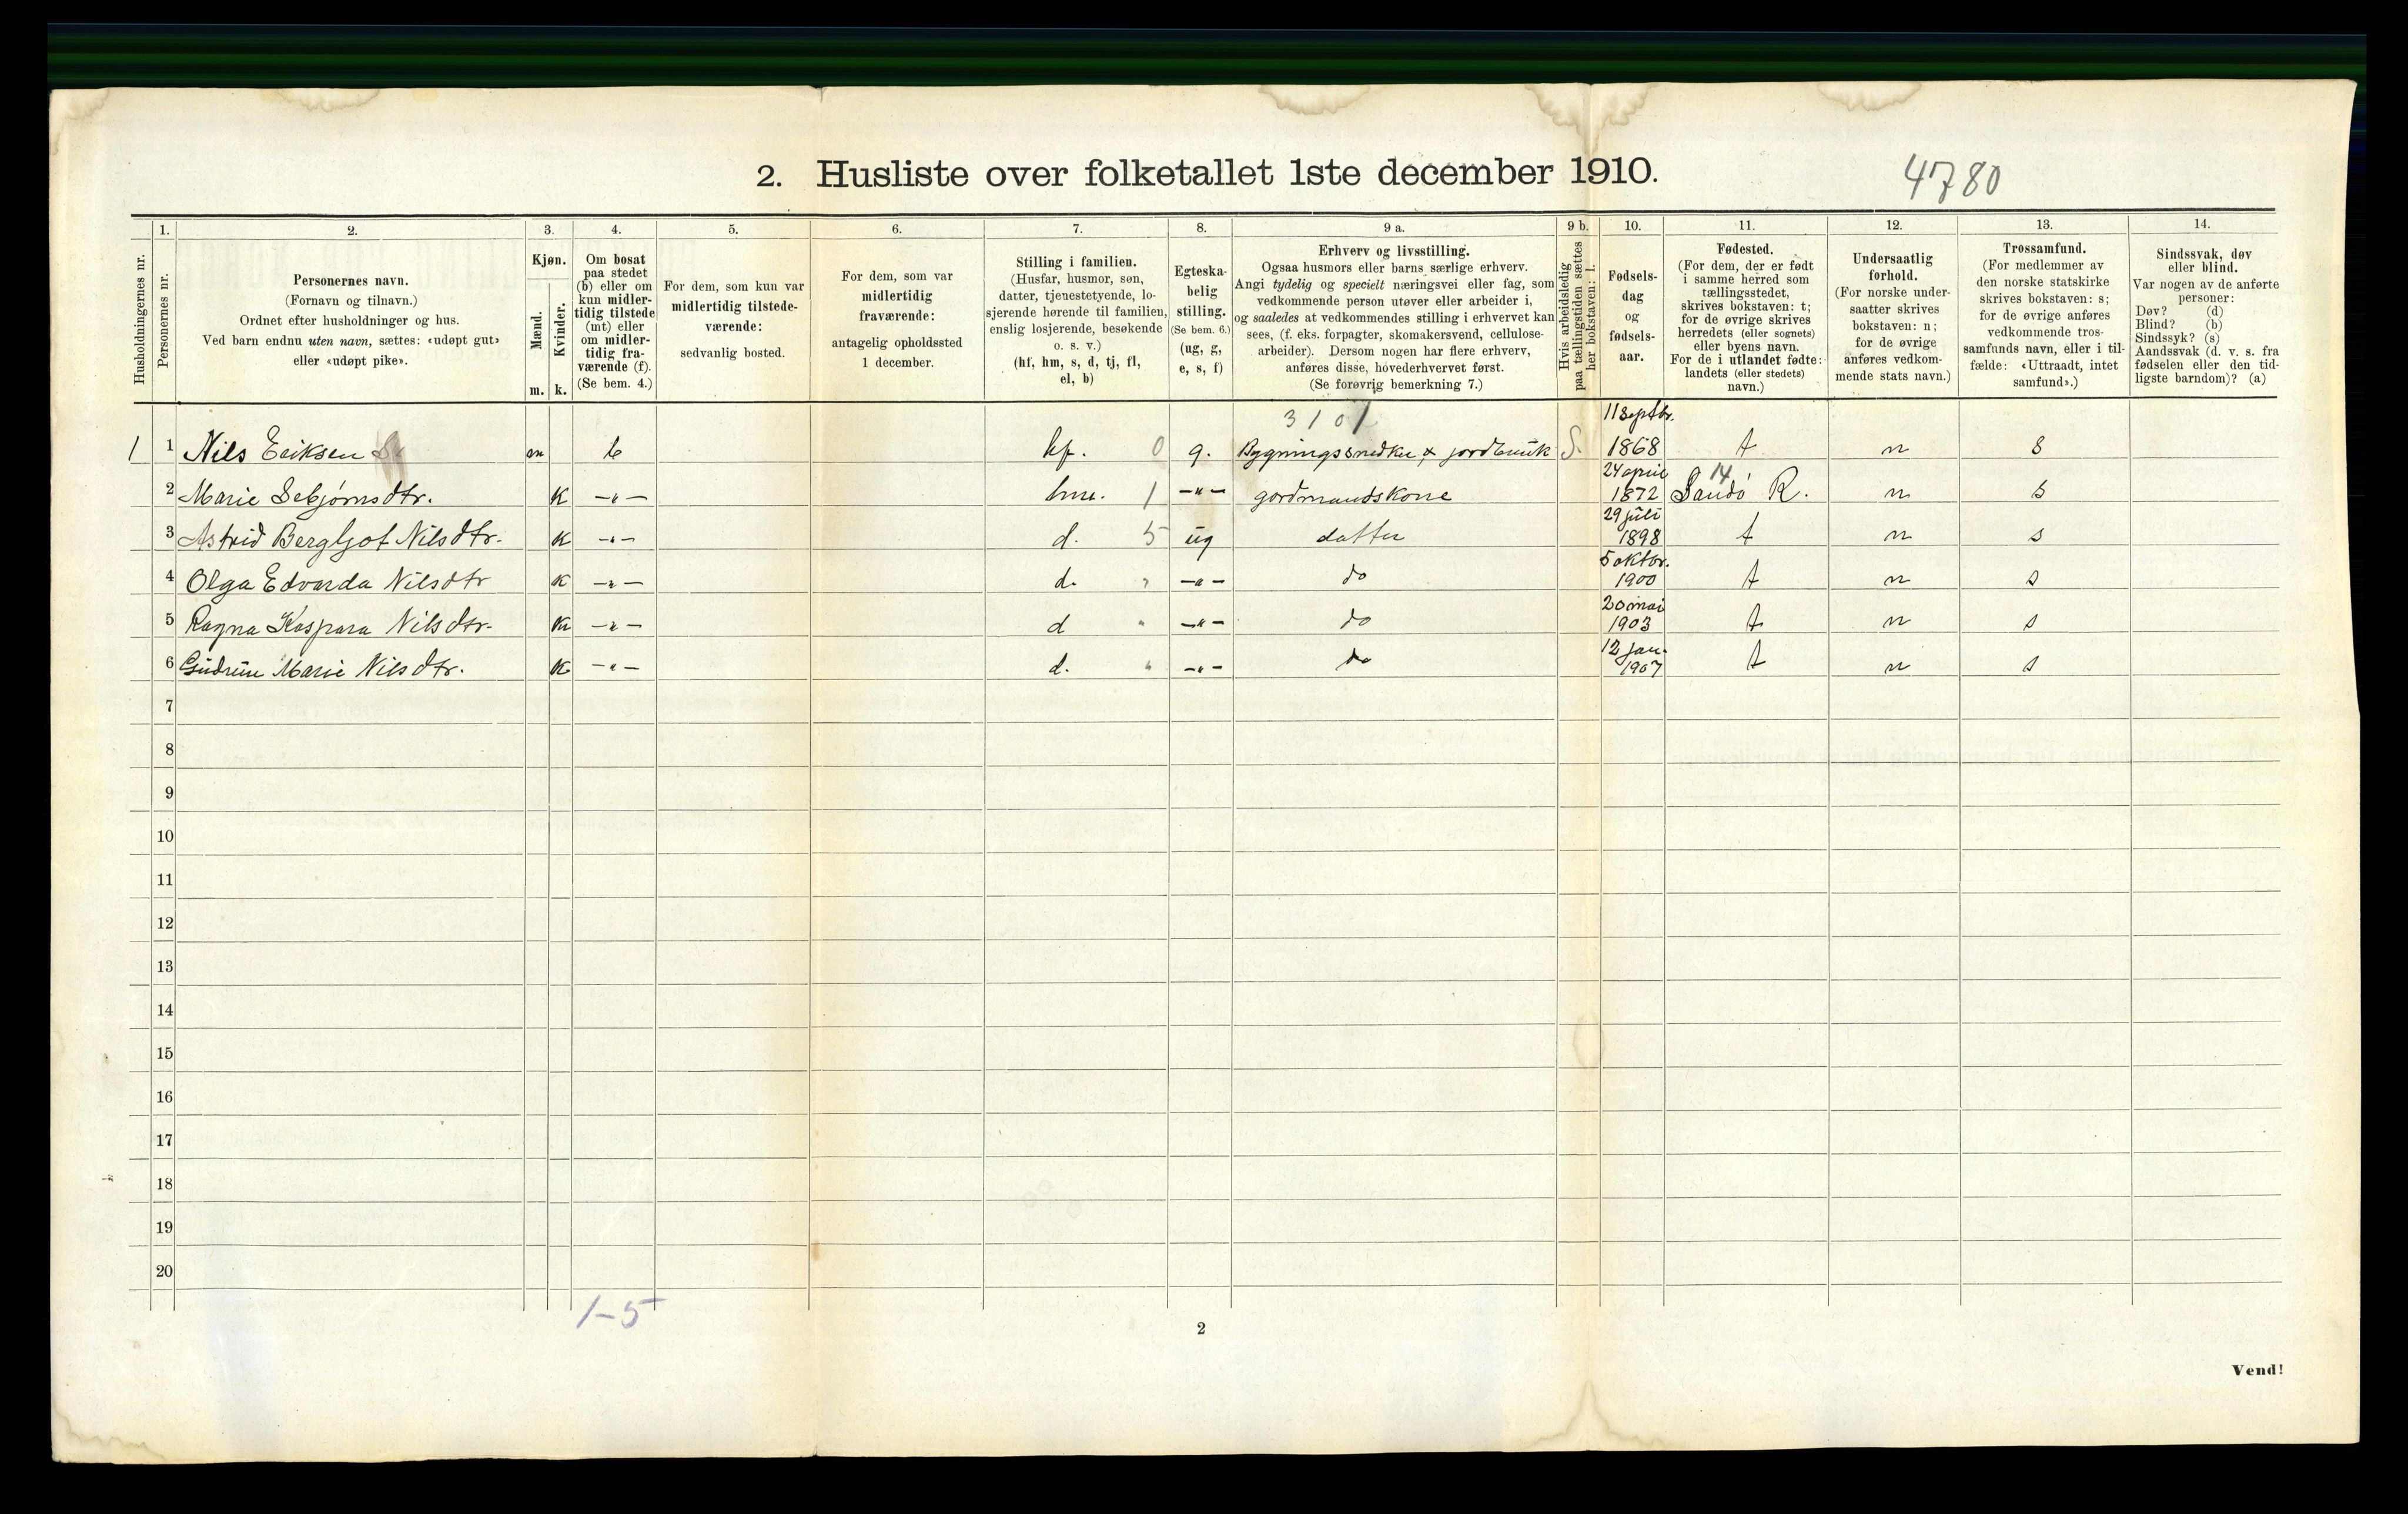 2. Husliste over folketallet 1ste december 1910.
4780
Husholdningernes nr.
1.
Personernes nr.
2.
Personernes navn.
(Fornavn og tilnavn.)
Ordnet efter husholdninger og hus.
Ved barn endnu uten navn, sættes: «udøpt gut»
eller «udøpt pike».
3.
Kjøn.
Mænd.
Kvinder.
m. k.
4.
Om bosat
paa stedet
(b) eller om
kun midler-
tidig tilstede
(mt) eller
om midler-
tidig fra-
værende (f).
(Se bem. 4.)
5.
For dem, som kun var
midlertidig tilstede-
værende:
sedvanlig bosted.
6.
For dem, som var
midlertidig
fraværende:
antagelig opholdssted
1 december.
7.
Stilling i familien.
(Husfar, husmor, søn,
datter, tjenestetyende, lo-
sjerende hørende til familien,
enslig losjerende, besøkende
o. s. v.)
(hf, hm, s, d, tj, fl,
el, b)
8.
Egteska-
belig
stilling.
(Se bem. 6.)
(ug, g,
e, s, f)
9 a.
Erhverv og livsstilling.
Ogsaa husmors eller barns særlige erhverv.
Angi tydelig og specielt næringsvei eller fag, som
vedkommende person utøver eller arbeider i,
og saaledes at vedkommendes stilling i erhvervet kan
sees, (f. eks. forpagter, skomakersvend, cellulose-
arbeider). Dersom nogen har flere erhverv,
anføres disse, hovederhvervet først.
(Se forøvrig bemerkning 7.)
9 b.
Hvis arbeidsledig
paa tællingstiden sættes
her bokstaven: l.
10.
Fødsels-
dag
og
fødsels-
aar.
11.
Fødested.
(For dem, der er født
i samme herred som
tællingsstedet,
skrives bokstaven: t;
for de øvrige skrives
herredets (eller sognets)
eller byens navn.
For de i utlandet fødte:
landets (eller stedets)
navn.)
12.
Undersaatlig
forhold.
(For norske under-
saatter skrives
bokstaven: n;
for de øvrige
anføres vedkom-
mende stats navn.)
13.
Trossamfund.
(For medlemmer av
den norske statskirke
skrives bokstaven: s;
for de øvrige anføres
vedkommende tros-
samfunds navn, eller i til-
fælde: «Uttraadt, intet
samfund».)
14.
Sindssvak, døv
eller blind.
Var nogen av de anførte
personer:
Døv? (d)
Blind? (b)
Sindssyk? (s)
Aandssvak (d. v. s. fra
fødselen eller den tid-
ligste barndom)? (a)
3101 11 septbr.
1 1 Nils Eriksen m b hf. 0 g. Bygningssnedker & jordbruk S. 1868 t n s
24 april 14
2 Marie Sebjørnsdtr. K -"- hm. 1 -"- gordmandskone 1872 Sandö R. n s
29 juli
3 Astrid Bergljot Nilsdtr. K -"- d. 5 ug datter 1898 t n s
5 oktbr.
4 Olga Edvarda Nilsdtr K -"- d. " -"- do 1900 t n s
20 mai
5 Ragna Kaspara Nilsdtr. K -"- d " -"- do 1903 t n s
12 jan.
6 Gudrun Marie Nilsdtr. K -"- d. " -"- do 1907 t n s
7
8
9
10
11
12
13
14
15
16
17
18
19
20
1-5
2
Vend!